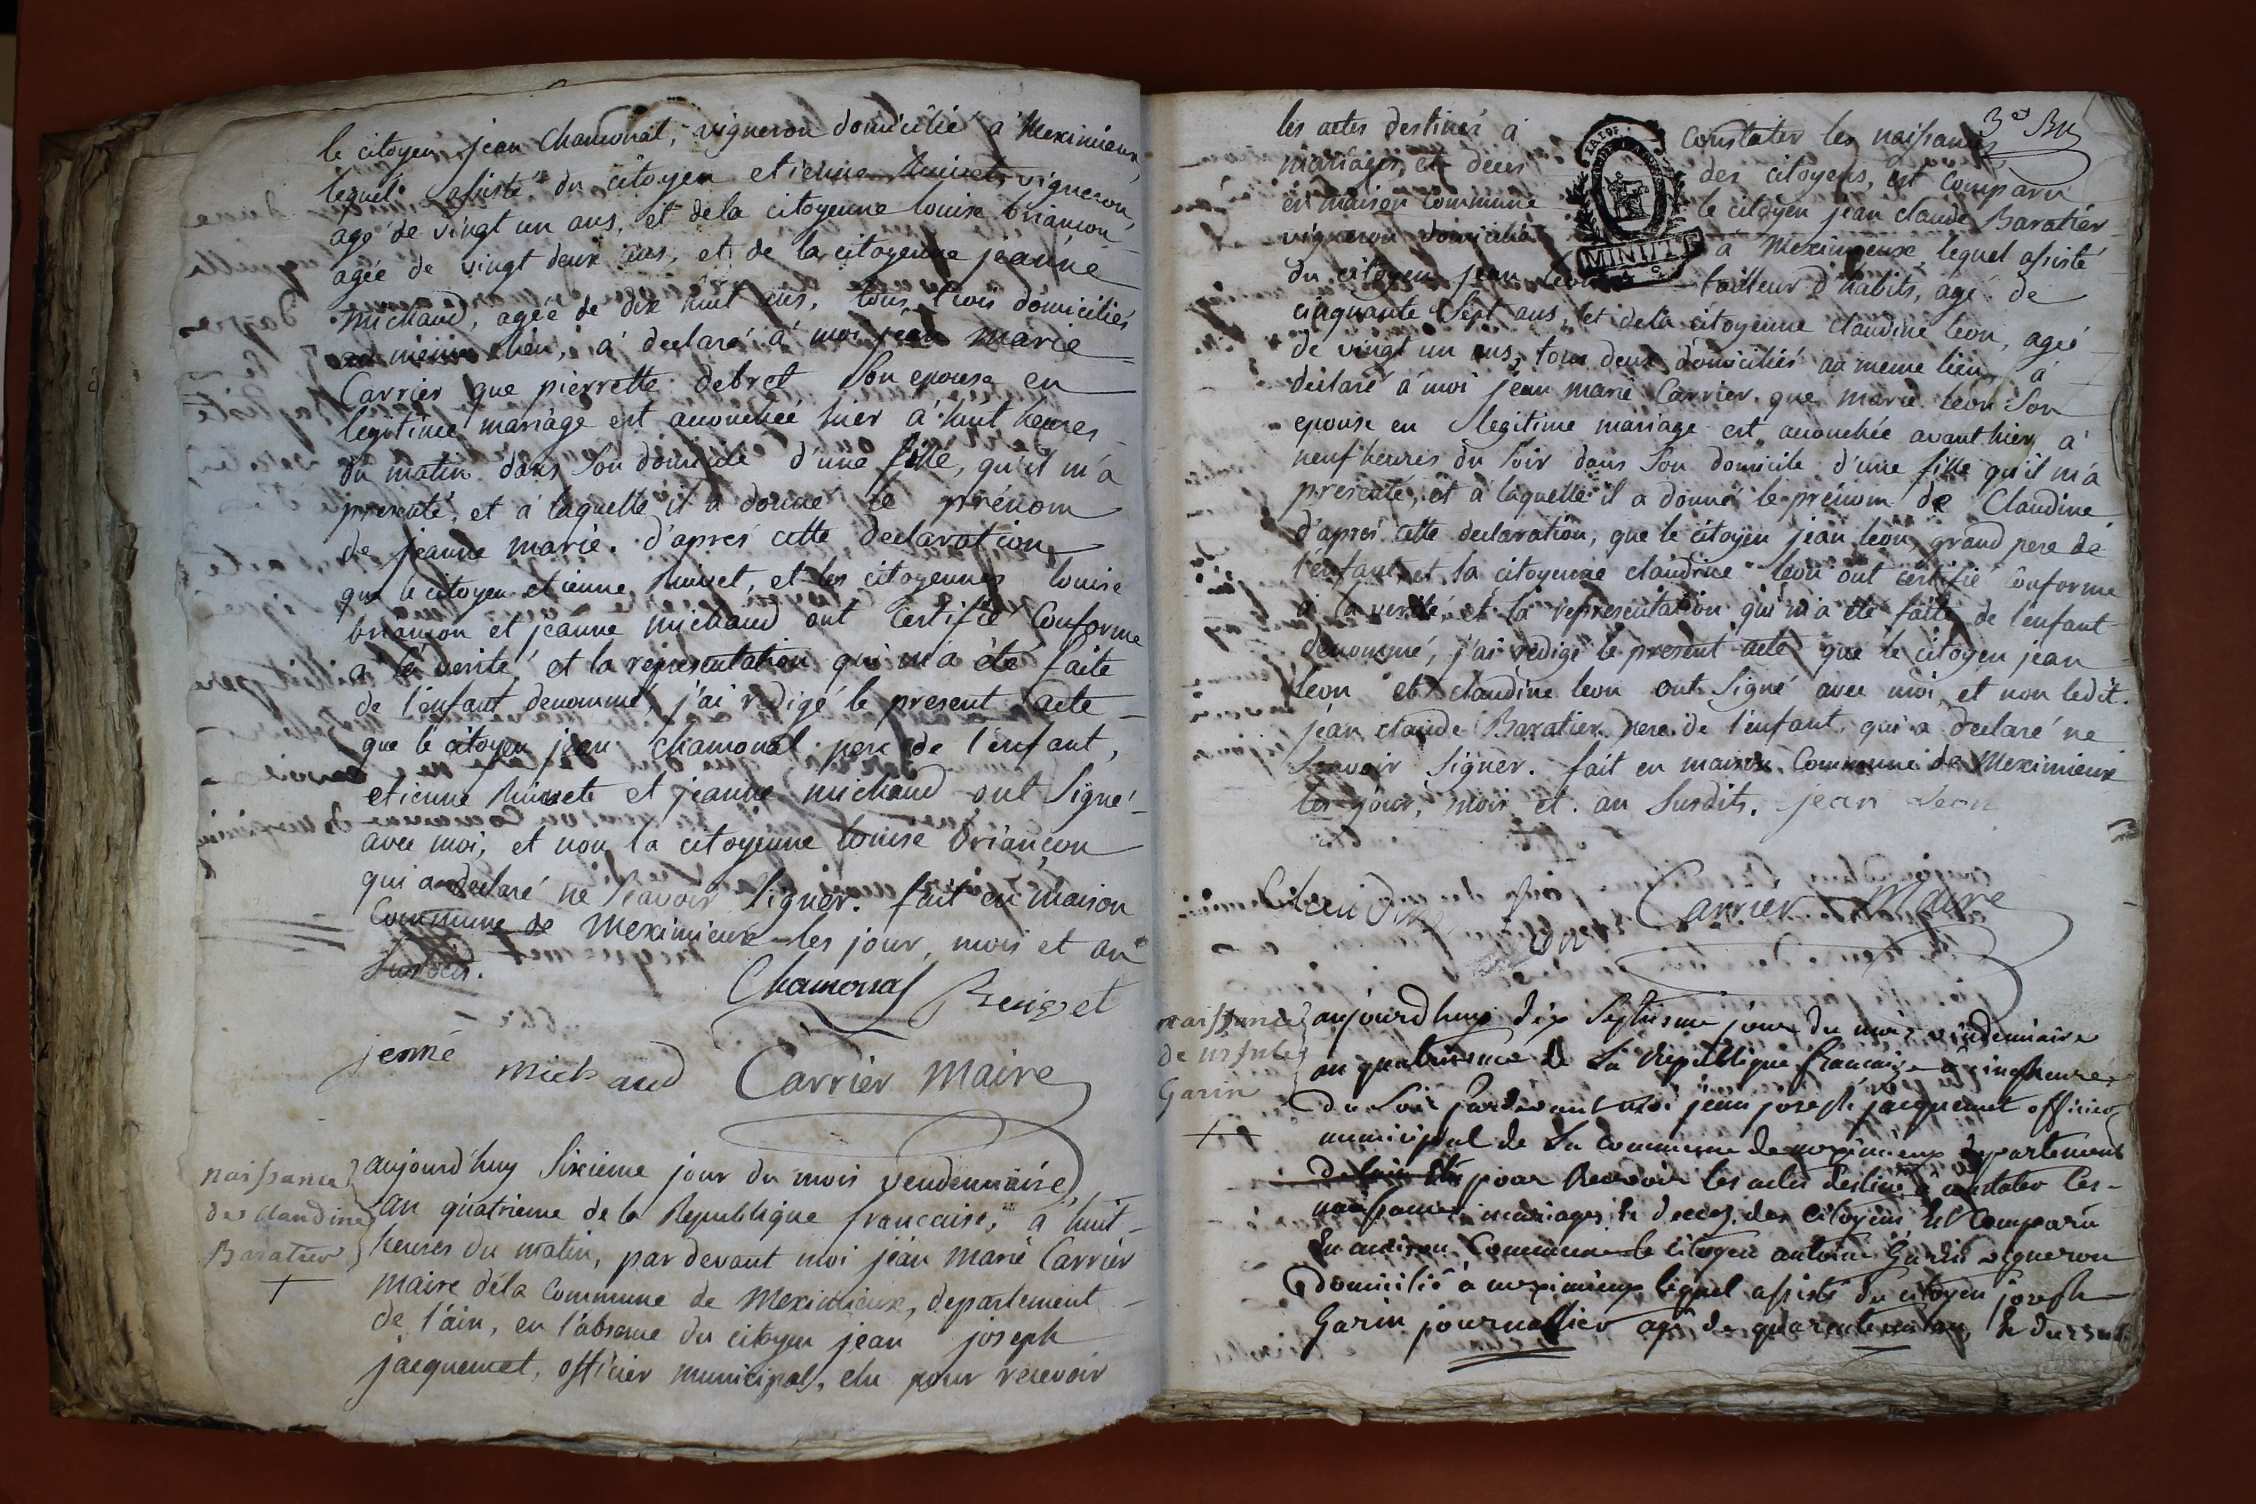 le citoyen jean Chamonal, vigneron domicilié a Meximieux,
lequel assisté du citoyen etienne vigneron,
agé de vingt un ans, et dela citoyenne louise briançon
agée de vingt deux ans, et de la citoyenne jeanne
michaud, agée de dix huit ans, tous trois domiciliés
au même lieu, a declaré à moi jean marie
Carrier que pierrette debret son epouse en
legitime mariage est accouchée hier a huit heures
du matin dans son domicile d'une fille, qu'il m'a
presenté, et a laquelle il a donné le prénom
de jeanne marie. d'aprés cette declaration
que le citoyen etienne et les citoyennes louise
briançon et jeanne michaud ont certifié Conforme
a la verité, et la representation qui m'a été faite
de l'enfant denommé, j'ai redigé le present acte
que le citoyen jean chamonal pere de l'enfant,
etienne et jeanne michaud ont signé
avec moi, et non la citoyenne louise briançon
qui a declaré ne scavoir signer. fait en maison
Commune de Meximieux les jour, mois et an
susdits.
Chamonal
jenne michaud Carrier Maire
naissance
de claudine
Baratier
aujourd'huy sixieme jour du mois vendemiaire,
an quatrieme de la Republique francaise, a huit
heures du matin, par devant moi jean marie Carrier
maire dela Commune de Meximieux, departement
de l'ain, en l'absence du citoyen jean joseph
jacquemet, officier municipal, elu pour recevoir
3e
les actes destinés a constater les naissances
mariages, et décès des citoyens, est comparu
en maison commune le citoyen jean claude Baratier
vigneron domicilié a Meximieux, lequel assisté
du citoyen jean leon tailleur d'habits, agé de
cinquante sept ans, et dela citoyenne claudine leon, agée
de vingt un ans, tous deux domiciliés au meme lieu, a
declaré a moi jean marie Carrier que marie leon son
epouse en legitime mariage est accouchée avant hier, a
neuf heures du soir dans son domicile d'une fille qu'il m'a
presenté, et a laquelle il a donné le prénom de Claudine
d'aprés cette declaration, que le citoyen jean leon, grand pere de
l'enfant, et la citoyenne claudine leon ont certifié conforme
a la verité, et la representation qui m'a été faite de l'enfant
denommé, j'ai redigé le present acte que le citoyen jean
leon et claudine leon ont signé avec moi et non ledit
jean claude Baratier pere de l'enfant, qui a declaré ne
scavoir signer. fait en maison Commune de Meximieux
les jour, mois et an susdits. jean leon
Carrier Maire
naissance
de ursule
Garin
aujourdhuy dix septiesme jour du mois vendemiaire
an quatriesme de la republique francaise a cinq heures
du soir pardevant moi jean joseph jacquemet officier
municipal de la commune de meximieux departement
de lain elu pour recevoir les actes destiné a constater les
naissances, mariages et deces des citoyens est comparu
en maison commune le citoyen antoine Garin vigneron
domicilié a meximieux lequel assisté du citoyen joseph
Garin journallier agé de quarante